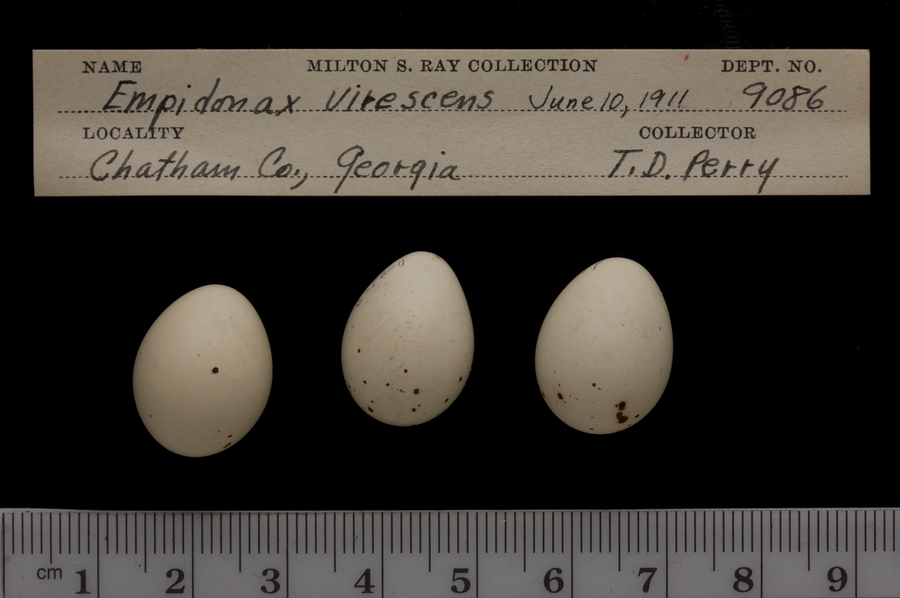 NAME MILTON S. RAY COLLECTION DEPT. NO.
Empidonax virescens June 10, 1911 9086
LOCALITY COLLECTOR
Chatham Co., Georgia T. D. Perry
cm 1 2 3 4 5 6 7 8 9